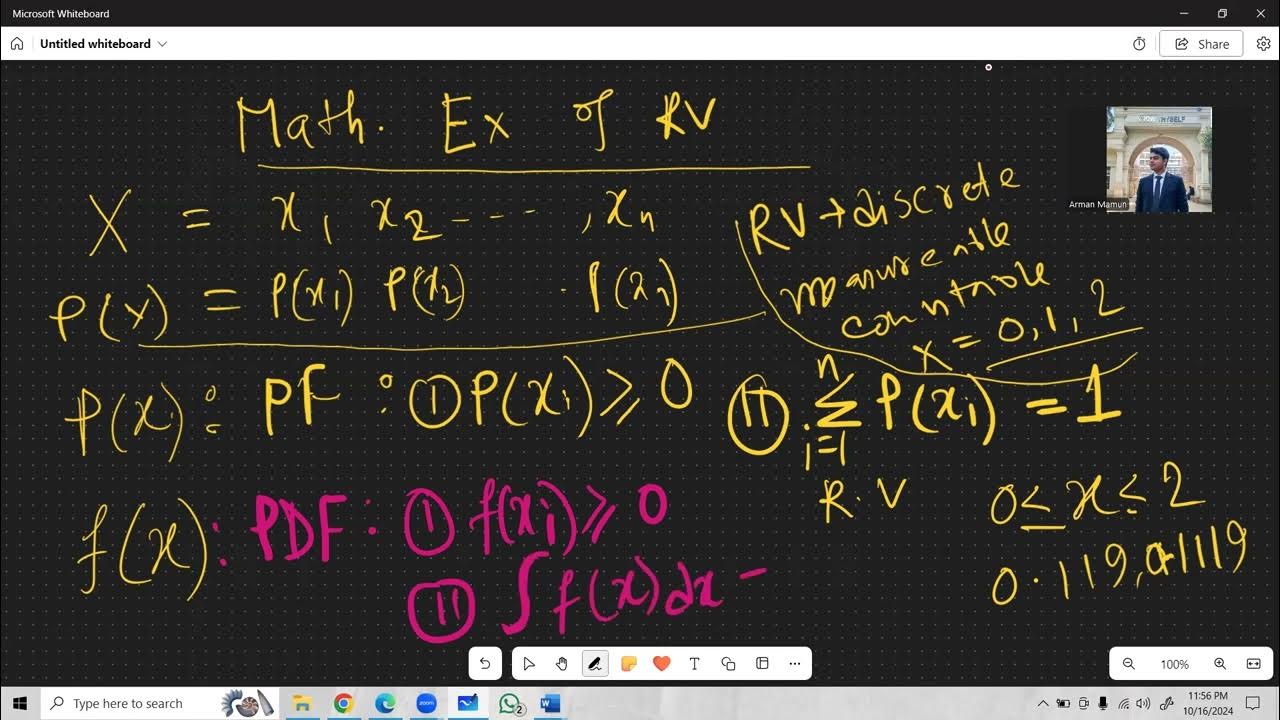 Microsoft Whiteboard
Untitled whiteboard
Share
Math. Ex of RV
X = x₁ x₂ ---- , xₙ
P(X) = P(x₁) P(x₂) . P(xₙ)
RV → discrete
measureable
countable
X = 0, 1, 2
P(x) : PF : ① P(xᵢ) ⩾ 0
⑪ . ∑ᵢ₌₁ⁿ P(xᵢ) = 1
f(x) : PDF : ① f(xᵢ) ⩾ 0
⑪ ∫ f(x) dx -
R.V 0 ≤ x ≤ 2
Arman Mamun
100%
Type here to search
zoom
2
11:56 PM
10/16/2024